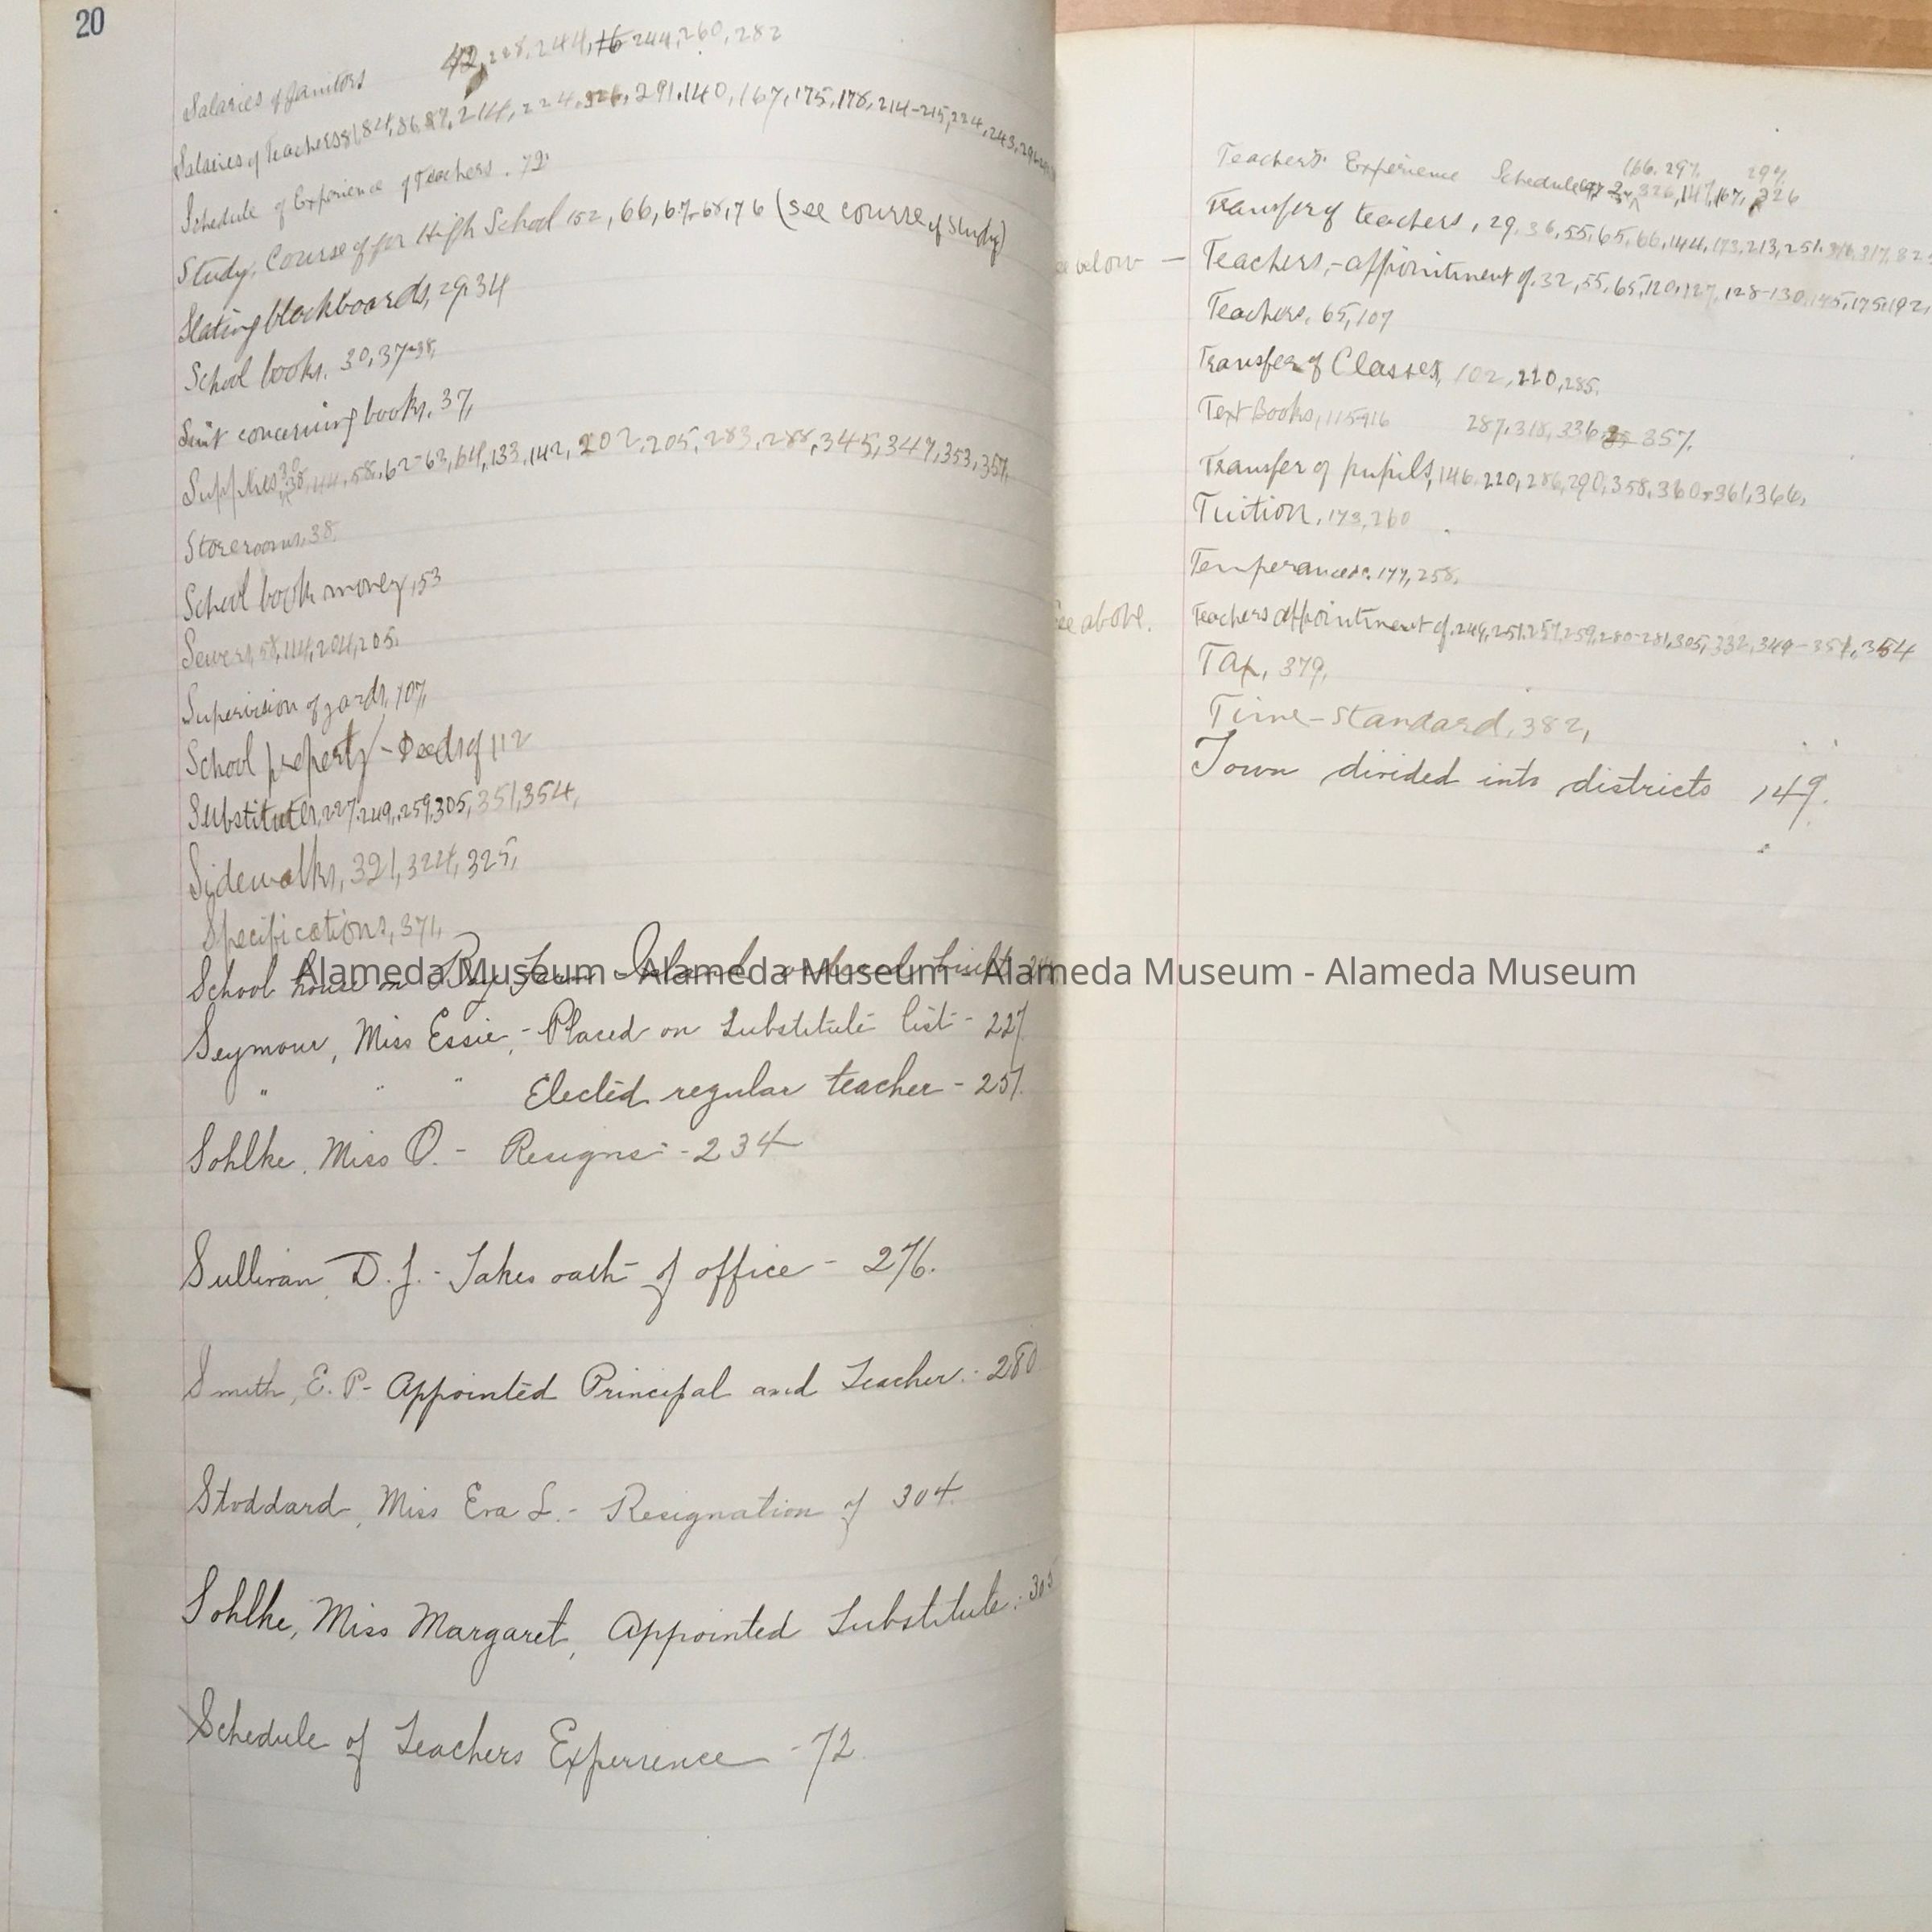 20
Salaries of Janitors 42, 228, 244, 16 244, 260, 282
Salaries of Teachers 81, 84, 86, 87, 214, 224, 326, 291, 140, 167, 175, 178, 214-215, 224, 243,
Schedule of Experience of Teachers. 72
Study, Course of for High School 152, 66, 67-68, 76 (see course of study)
Slating blackboards, 29, 34
School books. 30, 37-38,
Suit concerning books. 37,
Supplies, 38, 44, 58, 62-63, 64, 133, 142, 202, 205, 283, 288, 345, 347, 353, 357,
Storerooms, 38.
School book money, 53
Sewers, 58, 114, 204, 205.
Supervision of yards, 107,
School property - Deeds of 112
Substitutes, 227, 249, 259, 305, 351, 354,
Sidewalks, 321, 324, 325,
Specifications, 371,
School house on Bay Farm Island ordered built
Seymour, Miss Essie, - Placed on Substitute list - 227
" " " Elected regular teacher - 251.
Sohlke, Miss O. - Resigns - 234
Sullivan, D. J. - Takes oath of office - 276.
Smith, E. P. - Appointed Principal and Teacher. - 280
Stoddard, Miss Eva L. - Resignation of 304.
Sohlke, Miss Margaret, Appointed Substitute. - 305
Schedule of Teachers Experience - 72.
Teachers' Experience Schedule 166. 297, 326, 147, 167, 326
Transfer of teachers, 29, 36, 55, 65, 66, 144, 173, 213, 251, 316, 317,
see below — Teachers, - appointment of. 32, 55, 65, 120, 127, 128-130, 145, 175, 192,
Teachers, 65, 107
Transfer of Classes, 102, 210, 285.
Text Books, 115 287, 318, 336 357.
Transfer of pupils, 146, 220, 286, 290, 358, 360-361, 366,
Tuition, 173, 260
Temperance. 177, 258.
see above. Teachers appointment of. 249, 251, 257, 259, 280-281, 305, 332, 349-351, 354
Tax, 379,
Time-standard, 382,
Town divided into districts 149.
Alameda Museum - Alameda Museum - Alameda Museum - Alameda Museum